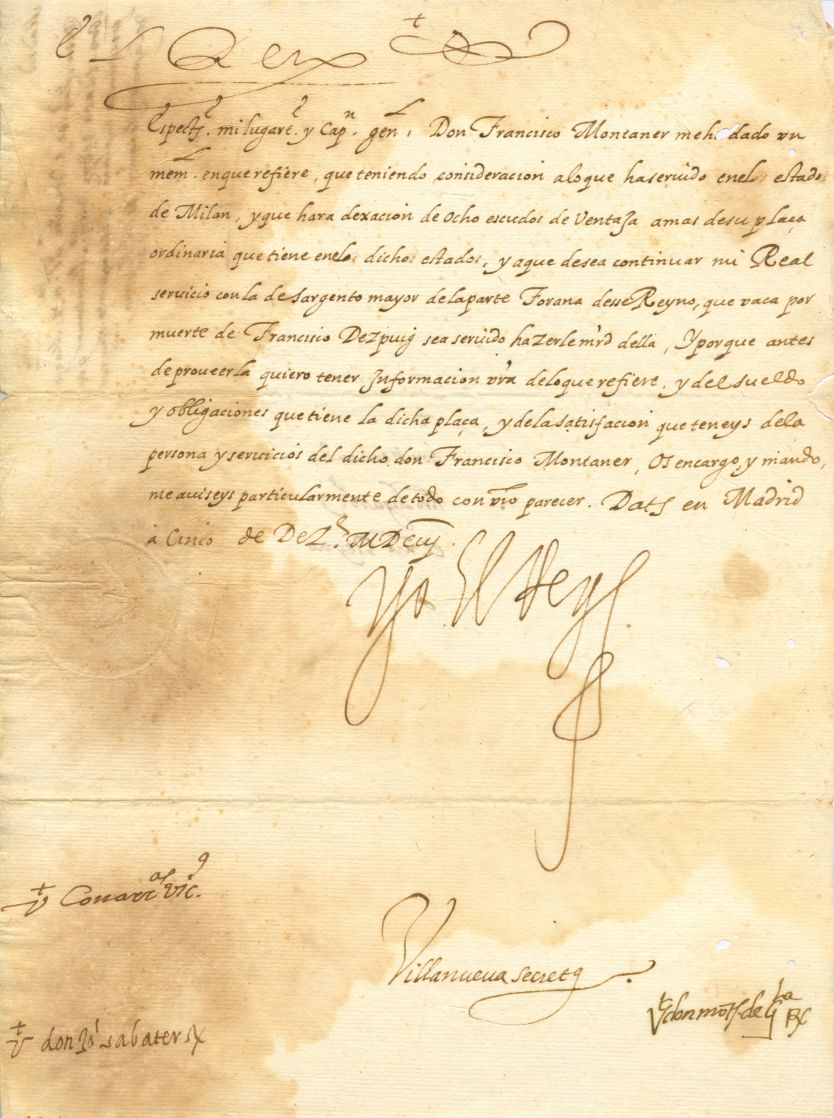 El Rey
Espectle. mi lugarte. y Capn. genl. Don Francisco Montaner me ha dado un
meml. en que refiere, que teniendo consideracion alo que ha seruido enelos estados
de Milan, y que hara dexacion de Ocho escudos de Ventaja amas desu plaça
ordinaria que tiene enelos dichos estados, y aque desea continuar mi Real
seruicio con la de Sargento mayor de la parte Forana desse Reyno, que vaca por
muerte de Francisco Dezpuig sea seruido hazerle mrd della, Y porque antes
de proveerla quiero tener Informacion vra delo que refiere, y del sueldo
y obligaciones que tiene la dicha plaça, y de la satisfacion que teneys dela
persona y seruicios del dicho don Francisco Montaner, Os encargo, y mando,
me auiseys particularmente de todo con vro parecer. Datt en Madrid
à Cinco de Dezre.
Yo El Rey
Vt Couarrs. vic.
Villanueua secretq
Vt don sabater
Vt don de